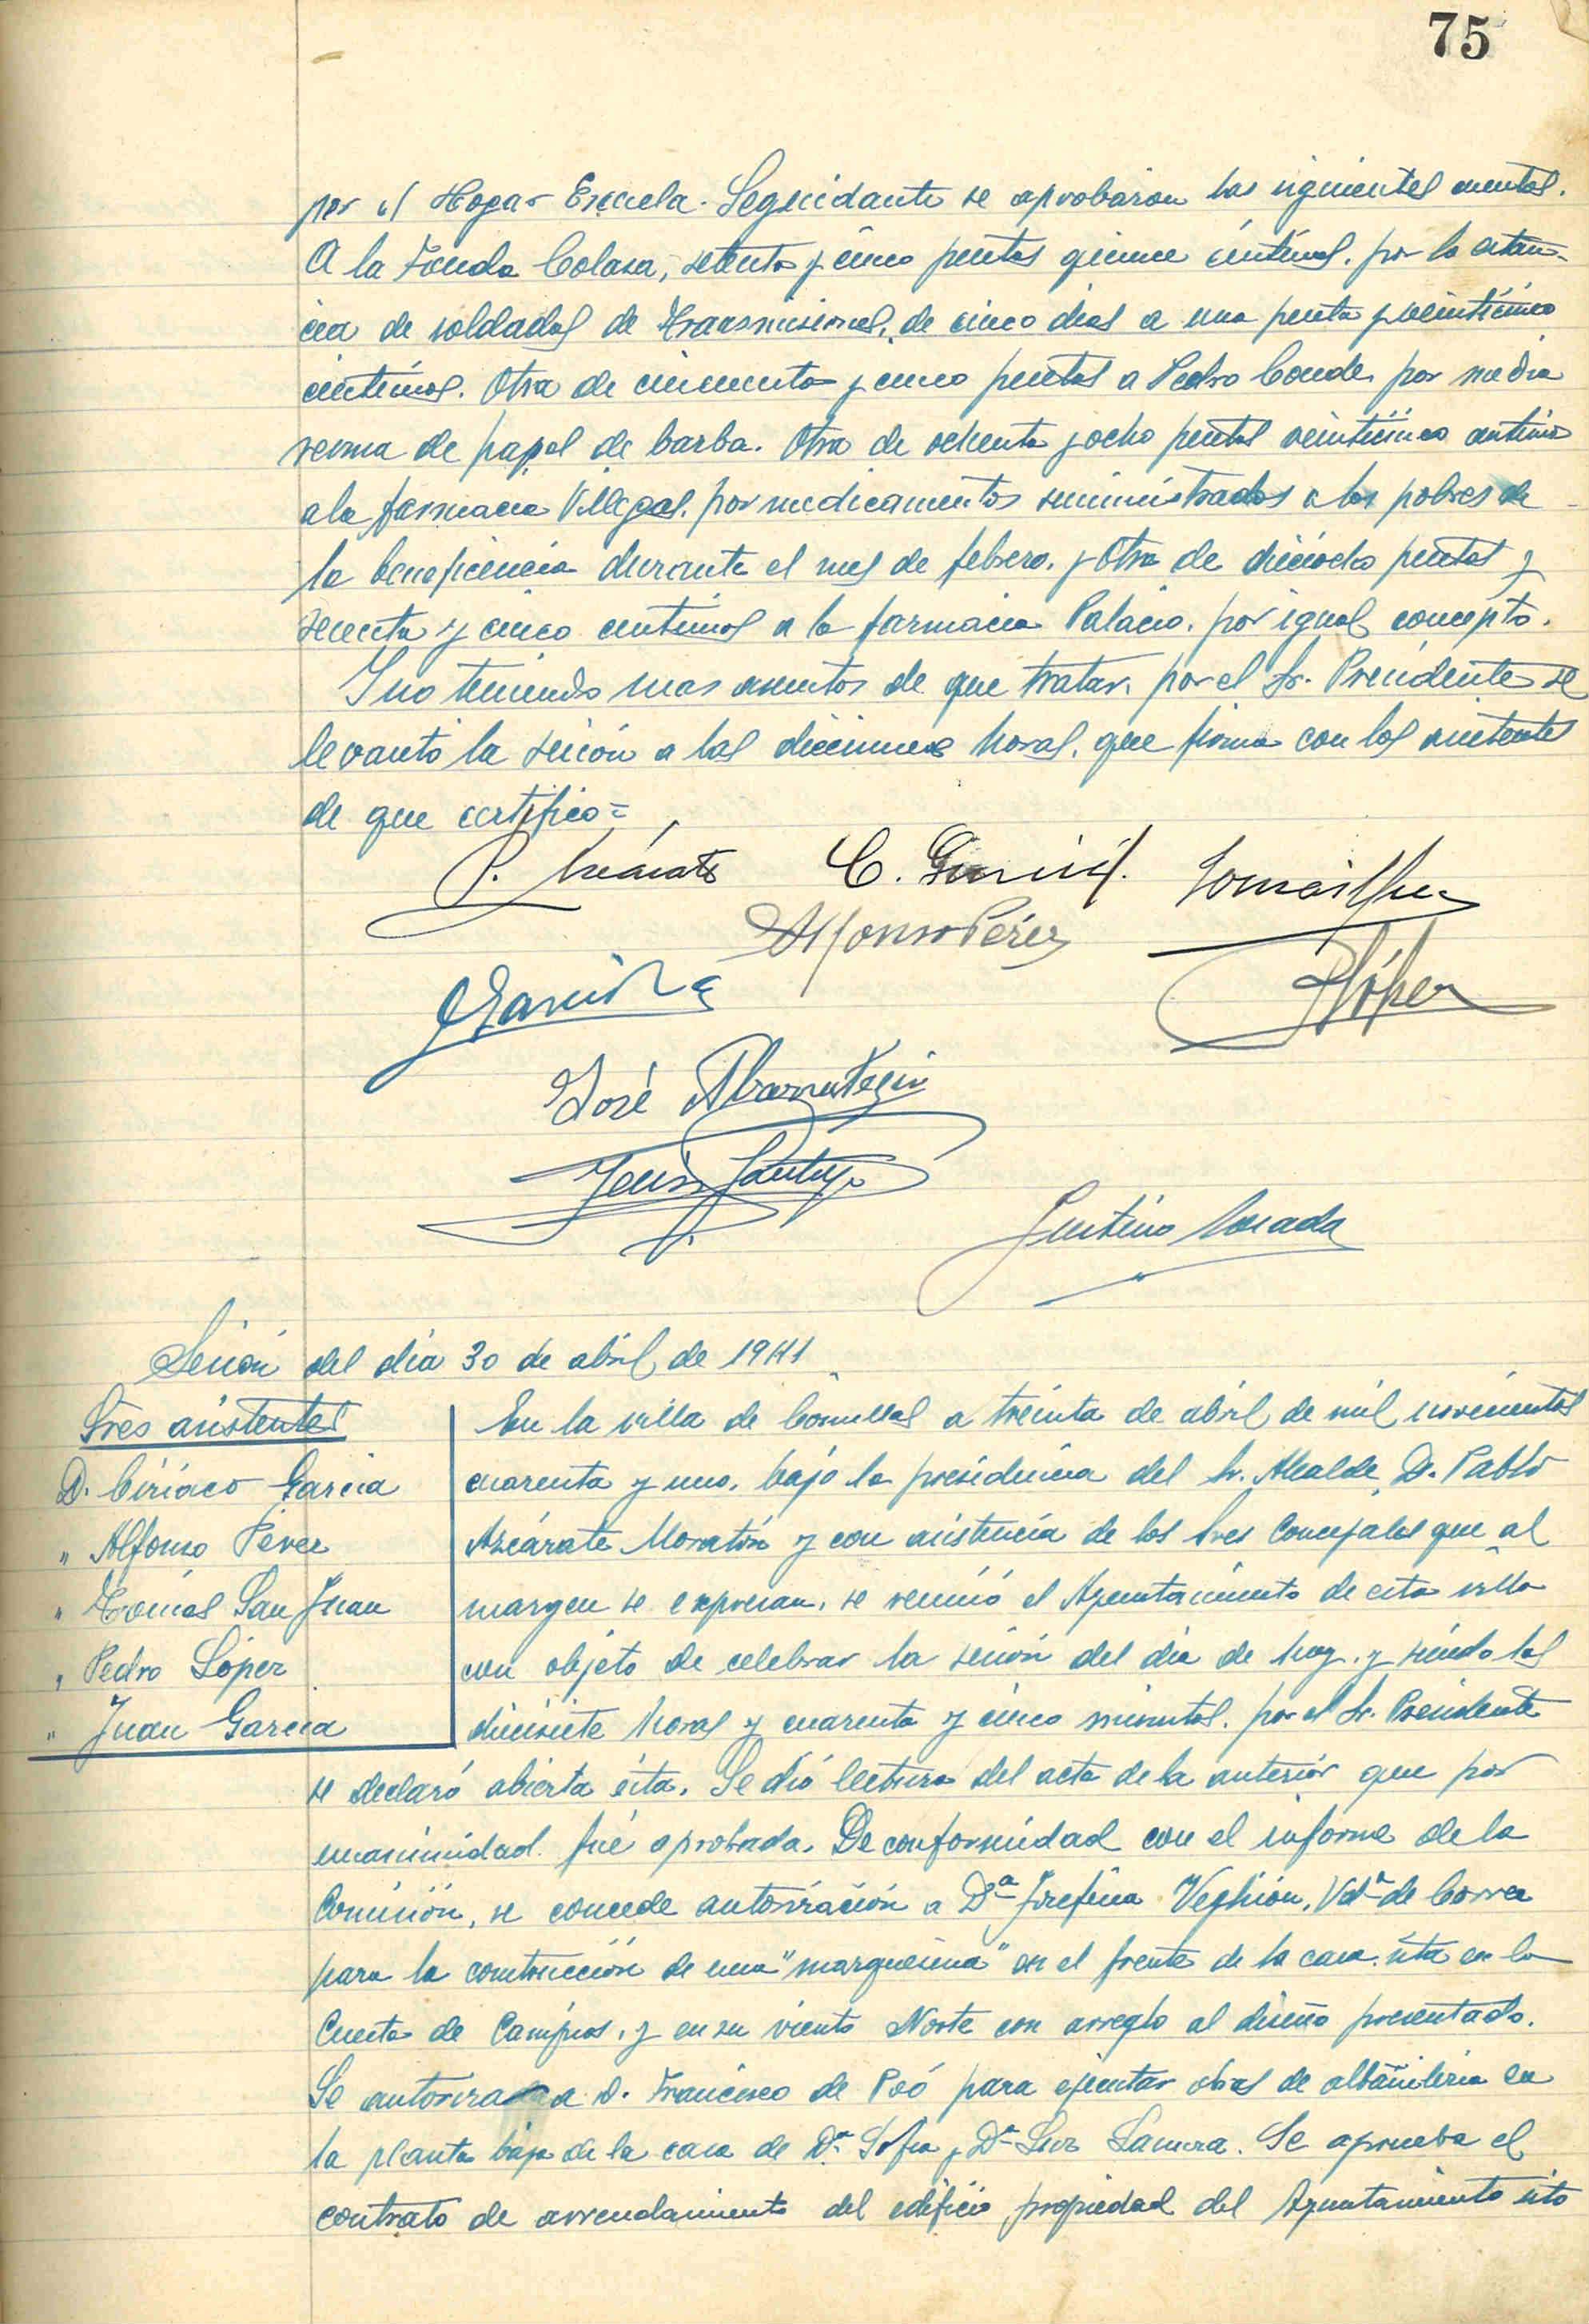 75
por el Hogar Escuela. Seguidante se aprobaron las siguientes cuentas.
A la Fonda Colasa, setenta y cinco pesetas quince céntimos, por la estan-
cia de soldados de Transmisiones, de cinco días a una peseta y veinticinco
céntimos. Otra de cincuenta y cinco pesetas a Pedro Conde, por media
resma de papel de barba. Otra de ochenta y ocho pesetas veinticinco céntimos
a la farmacia Villegas, por medicamentos suministrados a los pobres de
la beneficencia durante el mes de febrero, y Otra de dieciocho pesetas y
sesenta y cinco centimos a la farmacia Palacio, por igual concepto.
Y no teniendo mas asuntos de que tratar, por el Sr. Presidente se
levantó la sesión a las diecinueve horas, que firma con los asistentes
de que certifico =
P. Azcárate C. García Tomás
Alfonso Pérez
J García P López
José
Jesús
Justino Posada
Sesión del día 30 de abril de 1941
Sres asistentes
D. Ciriaco Garcia
" Alfonso Pérez
" Tomás San Juan
" Pedro López
" Juan Garcia
En la villa de Comillas a treinta de abril de mil novecientos
cuarenta y uno, bajo la presidencia del Sr. Alcalde, D. Pablo
Azcárate Moratón y con asistencia de los Sres Concejales que al
margen se expresan, se reunió el Ayuntamiento de esta villa
con objeto de celebrar la sesión del día de hoy, y siendo las
diecisiete horas y cuarenta y cinco minutos, por el Sr. Presidente
se declaró abierta ésta. Se dió lectura del acta de la anterior que por
unanimidad fué aprobada. De conformidad con el informe de la
Comisión, se concede autorización a Dª Josefina Veghión, Vdª de Correa
para la construcción de una "marquesina" en el frente de la casa sita en la
Cuesta de Campios, y en su viento Norte con arreglo al diseño presentado.
Se autoriza a D. Francisco de Poó para ejecutar obras de albañilería en
la planta baja de la casa de Dª Sofia y Dª Luz Lamera. Se aprueba el
contrato de arrendamiento del edificio propiedad del Ayuntamiento sito